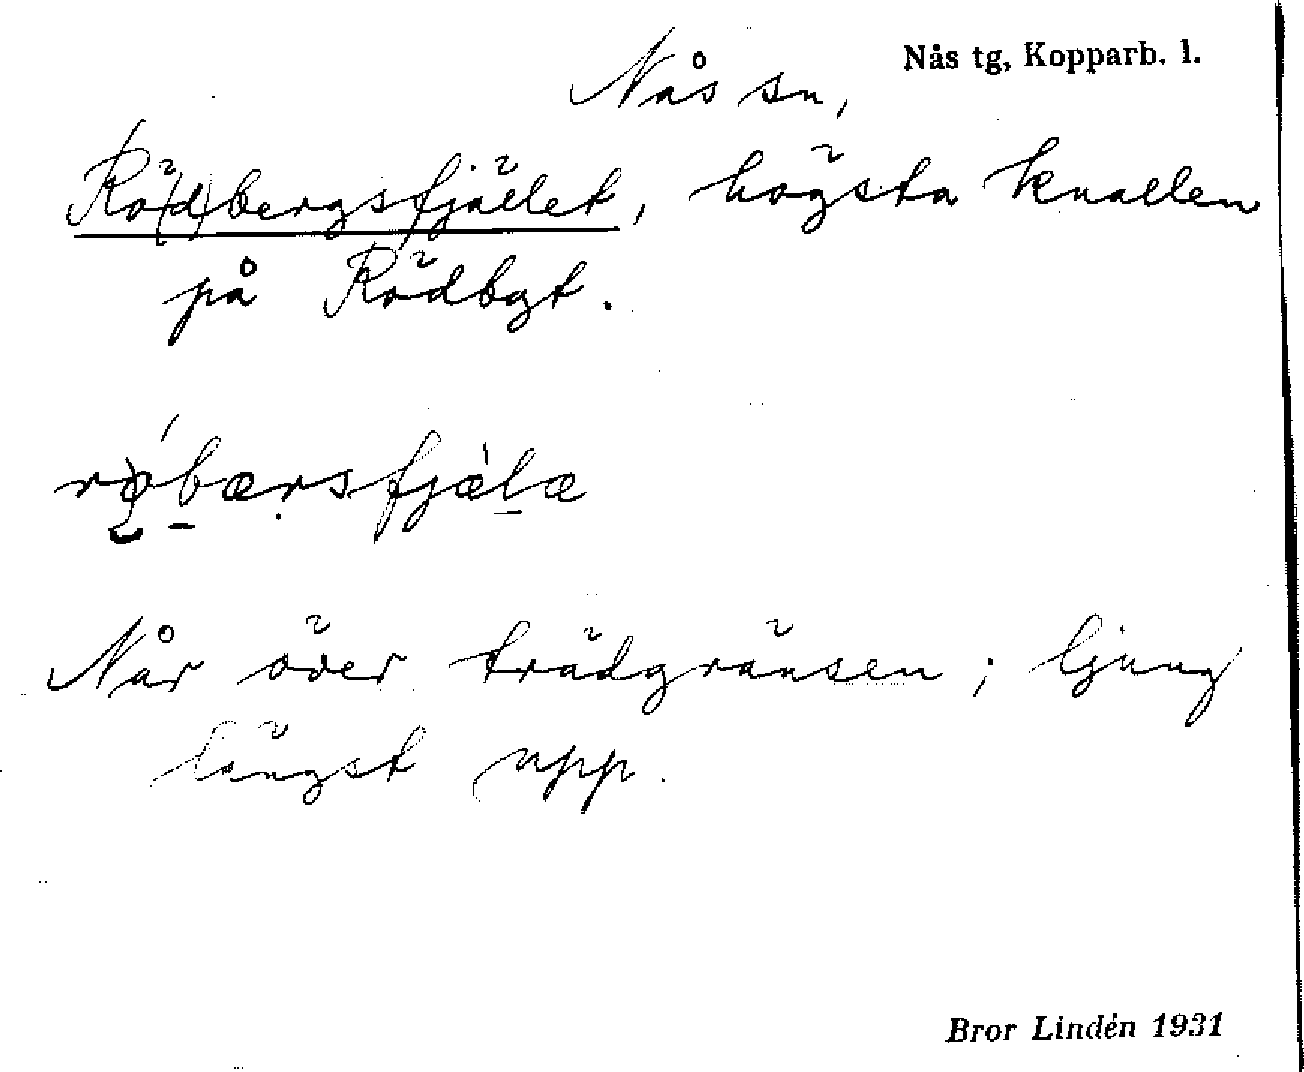 Nås tg, Kopparb. l.
Nås sn,
Rö(d)bergsfjället, högsta knallen
på Rödbgt.
Når över trädgränsen; ljung
längst upp.
Bror Lindén 1931